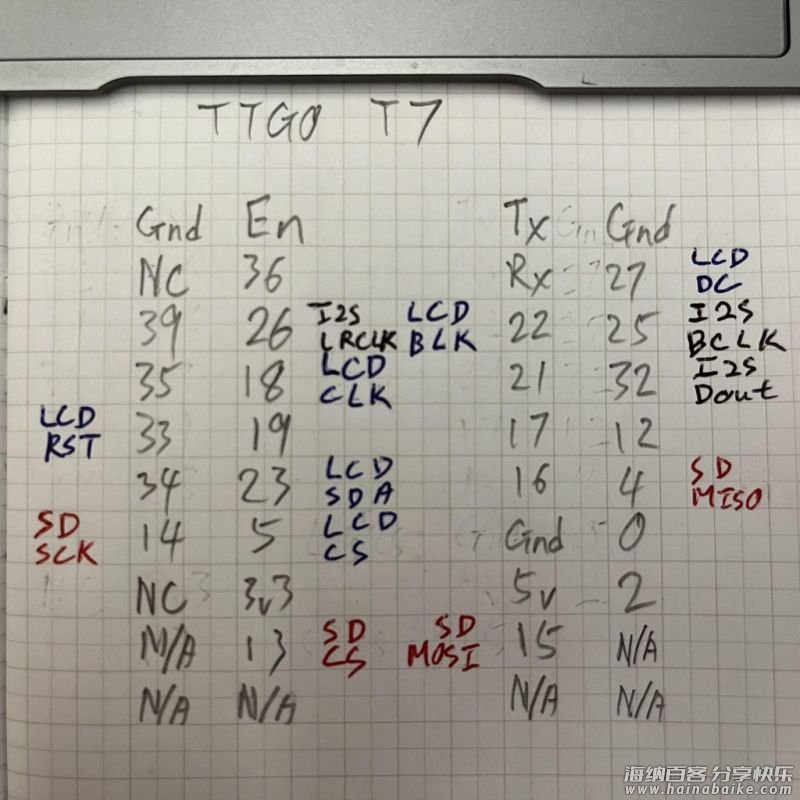 TTGO T7
Gnd En Tx Gnd
NC 36 Rx 27 LCD DC
39 26 I2S LRCLK LCD BLK 22 25 I2S BCLK
35 18 LCD CLK 21 32 I2S Dout
LCD RST 33 19 17 12
34 23 LCD SDA 16 4 SD MISO
SD SCK 14 5 LCD CS Gnd 0
NC 3v3 5v 2
N/A 13 SD CS SD MOSI 15 N/A
N/A N/A N/A N/A
海纳百客 分享快乐
www.hainabaike.com